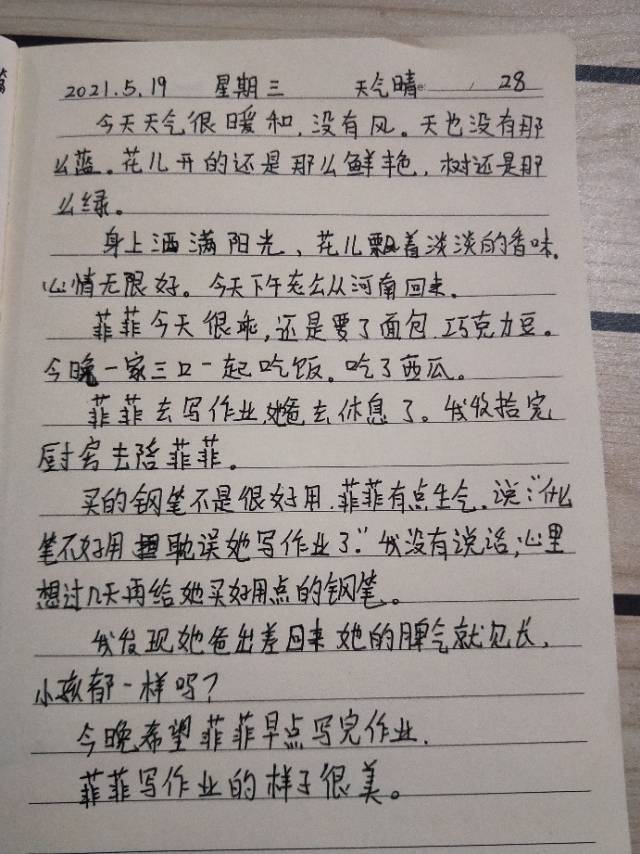 2021.5.19 星期三 天气晴 28
今天天气很暖和，没有风。天也没有那
么蓝。花儿开的还是那么鲜艳，树还是那
么绿。
身上洒满阳光，花儿飘着淡淡的香味，
心情无限好。今天下午老公从河南回来。
菲菲今天很乖，还是要了面包，巧克力豆。
今晚一家三口一起吃饭。吃了西瓜。
菲菲去写作业，她爸去休息了。我收拾完
厨房去陪菲菲。
买的钢笔不是很好用，菲菲有点生气，说："什么
笔不好用 耽误她写作业了。"我没有说话，心里
想过几天再给她买好用点的钢笔。
我发现她爸出差回来她的脾气就见长，
小孩都一样吗？
今晚希望菲菲早点写完作业，
菲菲写作业的样子很美。